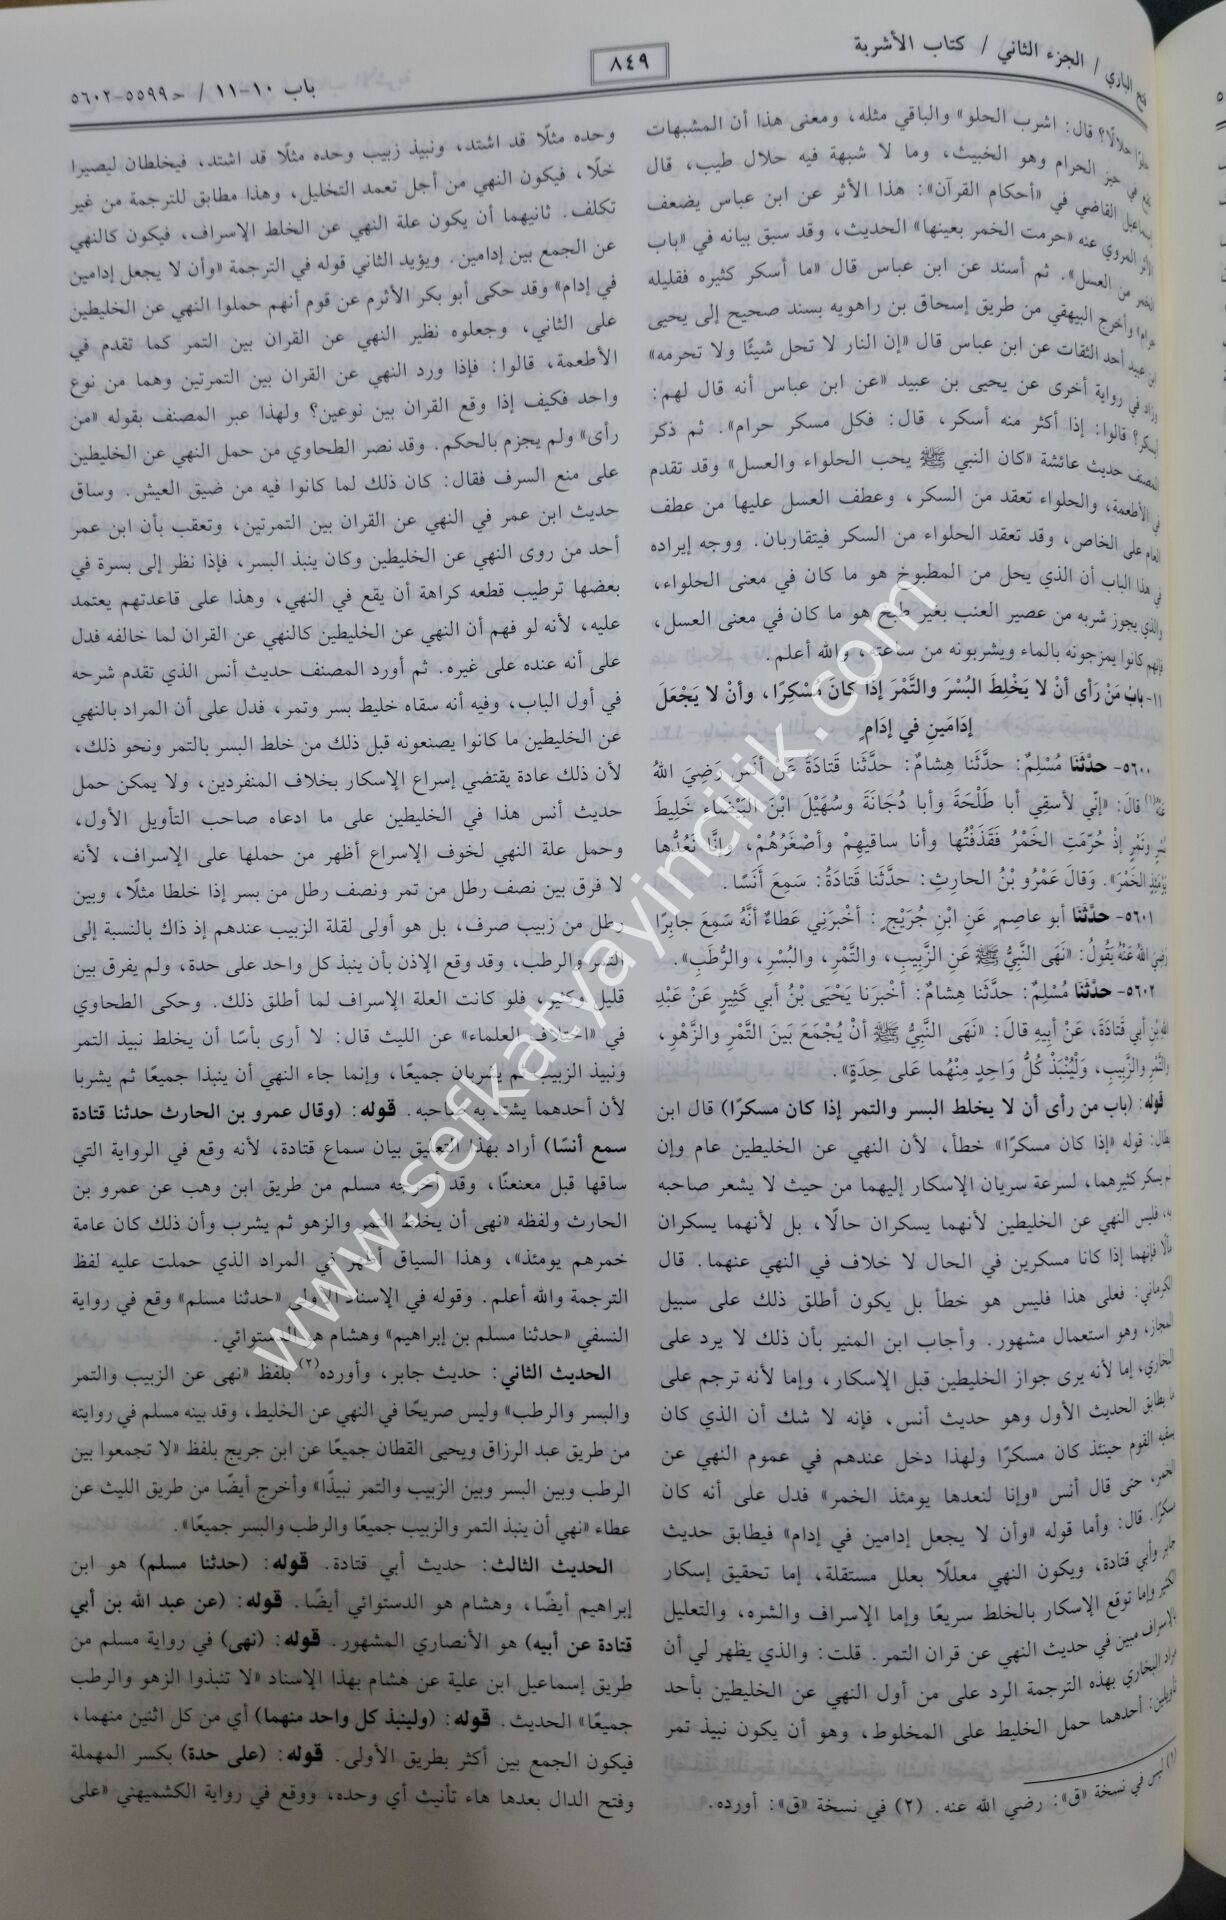 فتح الباري / الجزء الثاني / كتاب الأشربة
٨٤٩
باب ١٠-١١ / ح ٥٥٩٩-٥٦٠٢
حلالًا؟ قال: اشرب الحلو» والباقي مثله، ومعنى هذا أن المشبهات
في حيز الحرام وهو الخبيث، وما لا شبهة فيه حلال طيب، قال
إسماعيل القاضي في «أحكام القرآن»: هذا الأثر عن ابن عباس يضعف
الأثر المروي عنه «حرمت الخمر بعينها» الحديث، وقد سبق بيانه في «باب
الخمر من العسل». ثم أسند عن ابن عباس قال «ما أسكر كثيره فقليله
حرام» وأخرج البيهقي من طريق إسحاق بن راهويه بسند صحيح إلى يحيى
ابن عبيد أحد الثقات عن ابن عباس قال «إن النار لا تحل شيئًا ولا تحرمه»
وزاد في رواية أخرى عن يحيى بن عبيد «عن ابن عباس أنه قال لهم:
أيسكر؟ قالوا: إذا أكثر منه أسكر، قال: فكل مسكر حرام». ثم ذكر
المصنف حديث عائشة «كان النبي ﷺ يحب الحلواء والعسل» وقد تقدم
في الأطعمة، والحلواء تعقد من السكر، وعطف العسل عليها من عطف
العام على الخاص، وقد تعقد الحلواء من السكر فيتقاربان. ووجه إيراده
في هذا الباب أن الذي يحل من المطبوخ هو ما كان في معنى الحلواء،
والذي يجوز شربه من عصير العنب بغير طبخ هو ما كان في معنى العسل،
فإنهم كانوا يمزجونه بالماء ويشربونه من ساعته، والله أعلم.
١١- بابُ مَنْ رَأى أنْ لا يَخْلِطَ البُسْرَ والتَّمْرَ إذا كانَ مُسْكِرًا، وأنْ لا يَجْعَلَ
إدَامَينِ في إدَامٍ
٥٦٠٠- حدَّثَنا مُسْلِمٌ: حدَّثَنا هِشامٌ: حدَّثَنا قَتادَةُ عَنْ أنَسٍ رَضِيَ اللهُ
عَنْهُ(١) قالَ: «إنِّي لأسقِي أبا طَلْحَةَ وأبا دُجَانَةَ وسُهَيْلَ ابْنَ البَيْضَاءِ خَلِيطَ
بُسْرٍ وتَمْرٍ إذْ حُرِّمَتِ الخَمْرُ فَقَذَفْتُها وأنا ساقيهِمْ وأصْغَرُهُمْ، وإنَّا نَعُدُّها
يَوْمَئِذٍ الخَمْرَ». وَقَالَ عَمْرُو بْنُ الحارِثِ: حدَّثَنا قَتادَةُ: سَمِعَ أنَسًا.
٥٦٠١- حدَّثَنَا أبو عاصِمٍ عَنِ ابْنِ جُرَيْجٍ: أخْبَرَنِي عَطاءٌ أنَّهُ سَمِعَ جابِرًا
رَضِيَ اللهُ عَنْهُ يَقُولُ: «نَهَى النَّبِيُّ ﷺ عَنِ الزَّبِيبِ، والتَّمْرِ، والبُسْرِ، والرُّطَبِ».
٥٦٠٢- حدَّثَنَا مُسْلِمٌ: حدَّثَنا هِشامٌ: أخْبَرَنا يَحْيَى بْنُ أبي كَثِيرٍ عَنْ عَبْدِ
اللهِ بْنِ أبي قَتادَةَ، عَنْ أبِيهِ قالَ: «نَهَى النَّبِيُّ ﷺ أنْ يُجْمَعَ بَينَ التَّمْرِ والزَّهْوِ،
والتَّمْرِ والزَّبِيبِ، وَلْيُنْبَذْ كُلُّ وَاحِدٍ مِنْهُما عَلى حِدَةٍ».
قوله: (باب من رأى أن لا يخلط البسر والتمر إذا كان مسكرًا) قال ابن
بطال: قوله «إذا كان مسكرًا» خطأ، لأن النهي عن الخليطين عام وإن
لم يسكر كثيرهما، لسرعة سريان الإسكار إليهما من حيث لا يشعر صاحبه
به، فليس النهي عن الخليطين لأنهما يسكران حالًا، بل لأنهما يسكران
مآلًا فإنهما إذا كانا مسكرين في الحال لا خلاف في النهي عنهما. قال
الكرماني: فعلى هذا فليس هو خطأ بل يكون أطلق ذلك على سبيل
المجاز، وهو استعمال مشهور. وأجاب ابن المنير بأن ذلك لا يرد على
البخاري، إما لأنه يرى جواز الخليطين قبل الإسكار، وإما لأنه ترجم على
ما يطابق الحديث الأول وهو حديث أنس، فإنه لا شك أن الذي كان
يسقيه القوم حينئذ كان مسكرًا ولهذا دخل عندهم في عموم النهي عن
الخمر، حتى قال أنس «وإنا لنعدها يومئذ الخمر» فدل على أنه كان
مسكرًا. قال: وأما قوله «وأن لا يجعل إدامين في إدام» فيطابق حديث
جابر وأبي قتادة، ويكون النهي معللًا بعلل مستقلة، إما تحقيق إسكار
الكثير وإما توقع الإسكار بالخلط سريعًا وإما الإسراف والشره، والتعليل
بالإسراف مبين في حديث النهي عن قران التمر. قلت: والذي يظهر لي أن
مراد البخاري بهذه الترجمة الرد على من أول النهي عن الخليطين بأحد
تأويلين: أحدهما حمل الخليط على المخلوط، وهو أن يكون نبيذ تمر
(١) ليس في نسخة «ق»: رضي الله عنه. (٢) في نسخة «ق»: أورده.
وحده مثلًا قد اشتد، ونبيذ زبيب وحده مثلًا قد اشتد، فيخلطان ليصيرا
خلًا، فيكون النهي من أجل تعمد التخليل، وهذا مطابق للترجمة من غير
تكلف. ثانيهما أن يكون علة النهي عن الخلط الإسراف، فيكون كالنهي
عن الجمع بين إدامين. ويؤيد الثاني قوله في الترجمة «وأن لا يجعل إدامين
في إدام» وقد حكى أبو بكر الأثرم عن قوم أنهم حملوا النهي عن الخليطين
على الثاني، وجعلوه نظير النهي عن القران بين التمر كما تقدم في
الأطعمة، قالوا: فإذا ورد النهي عن القران بين التمرتين وهما من نوع
واحد فكيف إذا وقع القران بين نوعين؟ ولهذا عبر المصنف بقوله «من
رأى» ولم يجزم بالحكم. وقد نصر الطحاوي من حمل النهي عن الخليطين
على منع السرف فقال: كان ذلك لما كانوا فيه من ضيق العيش. وساق
حديث ابن عمر في النهي عن القران بين التمرتين، وتعقب بأن ابن عمر
أحد من روى النهي عن الخليطين وكان ينبذ البسر، فإذا نظر إلى بسرة في
بعضها ترطيب قطعه كراهة أن يقع في النهي، وهذا على قاعدتهم يعتمد
عليه، لأنه لو فهم أن النهي عن الخليطين كالنهي عن القران لما خالفه فدل
على أنه عنده على غيره. ثم أورد المصنف حديث أنس الذي تقدم شرحه
في أول الباب، وفيه أنه سقاه خليط بسر وتمر، فدل على أن المراد بالنهي
عن الخليطين ما كانوا يصنعونه قبل ذلك من خلط البسر بالتمر ونحو ذلك،
لأن ذلك عادة يقتضي إسراع الإسكار بخلاف المنفردين، ولا يمكن حمل
حديث أنس هذا في الخليطين على ما ادعاه صاحب التأويل الأول،
وحمل علة النهي لخوف الإسراع أظهر من حملها على الإسراف، لأنه
لا فرق بين نصف رطل من تمر ونصف رطل من بسر إذا خلطا مثلًا، وبين
رطل من زبيب صرف، بل هو أولى لقلة الزبيب عندهم إذ ذاك بالنسبة إلى
التمر والرطب، وقد وقع الإذن بأن ينبذ كل واحد على حدة، ولم يفرق بين
قليل وكثير، فلو كانت العلة الإسراف لما أطلق ذلك. وحكى الطحاوي
في «اختلاف العلماء» عن الليث قال: لا أرى بأسًا أن يخلط نبيذ التمر
ونبيذ الزبيب ثم يشربان جميعًا، وإنما جاء النهي أن ينبذا جميعًا ثم يشربا
لأن أحدهما يشتد به صاحبه. قوله: (وقال عمرو بن الحارث حدثنا قتادة
سمع أنسًا) أراد بهذا التعليق بيان سماع قتادة، لأنه وقع في الرواية التي
ساقها قبل معنعنًا، وقد أخرجه مسلم من طريق ابن وهب عن عمرو بن
الحارث ولفظه «نهى أن يخلط التمر والزهو ثم يشرب وأن ذلك كان عامة
خمرهم يومئذ»، وهذا السياق أظهر في المراد الذي حملت عليه لفظ
الترجمة والله أعلم. وقوله في الإسناد الأول «حدثنا مسلم» وقع في رواية
النسفي «حدثنا مسلم بن إبراهيم» وهشام هو الدستوائي.
الحديث الثاني: حديث جابر، وأورده(٢) بلفظ «نهى عن الزبيب والتمر
والبسر والرطب» وليس صريحًا في النهي عن الخليط، وقد بينه مسلم في روايته
من طريق عبد الرزاق ويحيى القطان جميعًا عن ابن جريج بلفظ «لا تجمعوا بين
الرطب وبين البسر وبين الزبيب والتمر نبيذًا» وأخرج أيضًا من طريق الليث عن
عطاء «نهى أن ينبذ التمر والزبيب جميعًا والرطب والبسر جميعًا».
الحديث الثالث: حديث أبي قتادة. قوله: (حدثنا مسلم) هو ابن
إبراهيم أيضًا، وهشام هو الدستوائي أيضًا. قوله: (عن عبد الله بن أبي
قتادة عن أبيه) هو الأنصاري المشهور. قوله: (نهى) في رواية مسلم من
طريق إسماعيل ابن علية عن هشام بهذا الإسناد «لا تنبذوا الزهو والرطب
جميعًا» الحديث. قوله: (ولينبذ كل واحد منهما) أي من كل اثنين منهما،
فيكون الجمع بين أكثر بطريق الأولى. قوله: (على حدة) بكسر المهملة
وفتح الدال بعدها هاء تأنيث أي وحده، ووقع في رواية الكشميهني «على
www.sefkatyayincilik.com